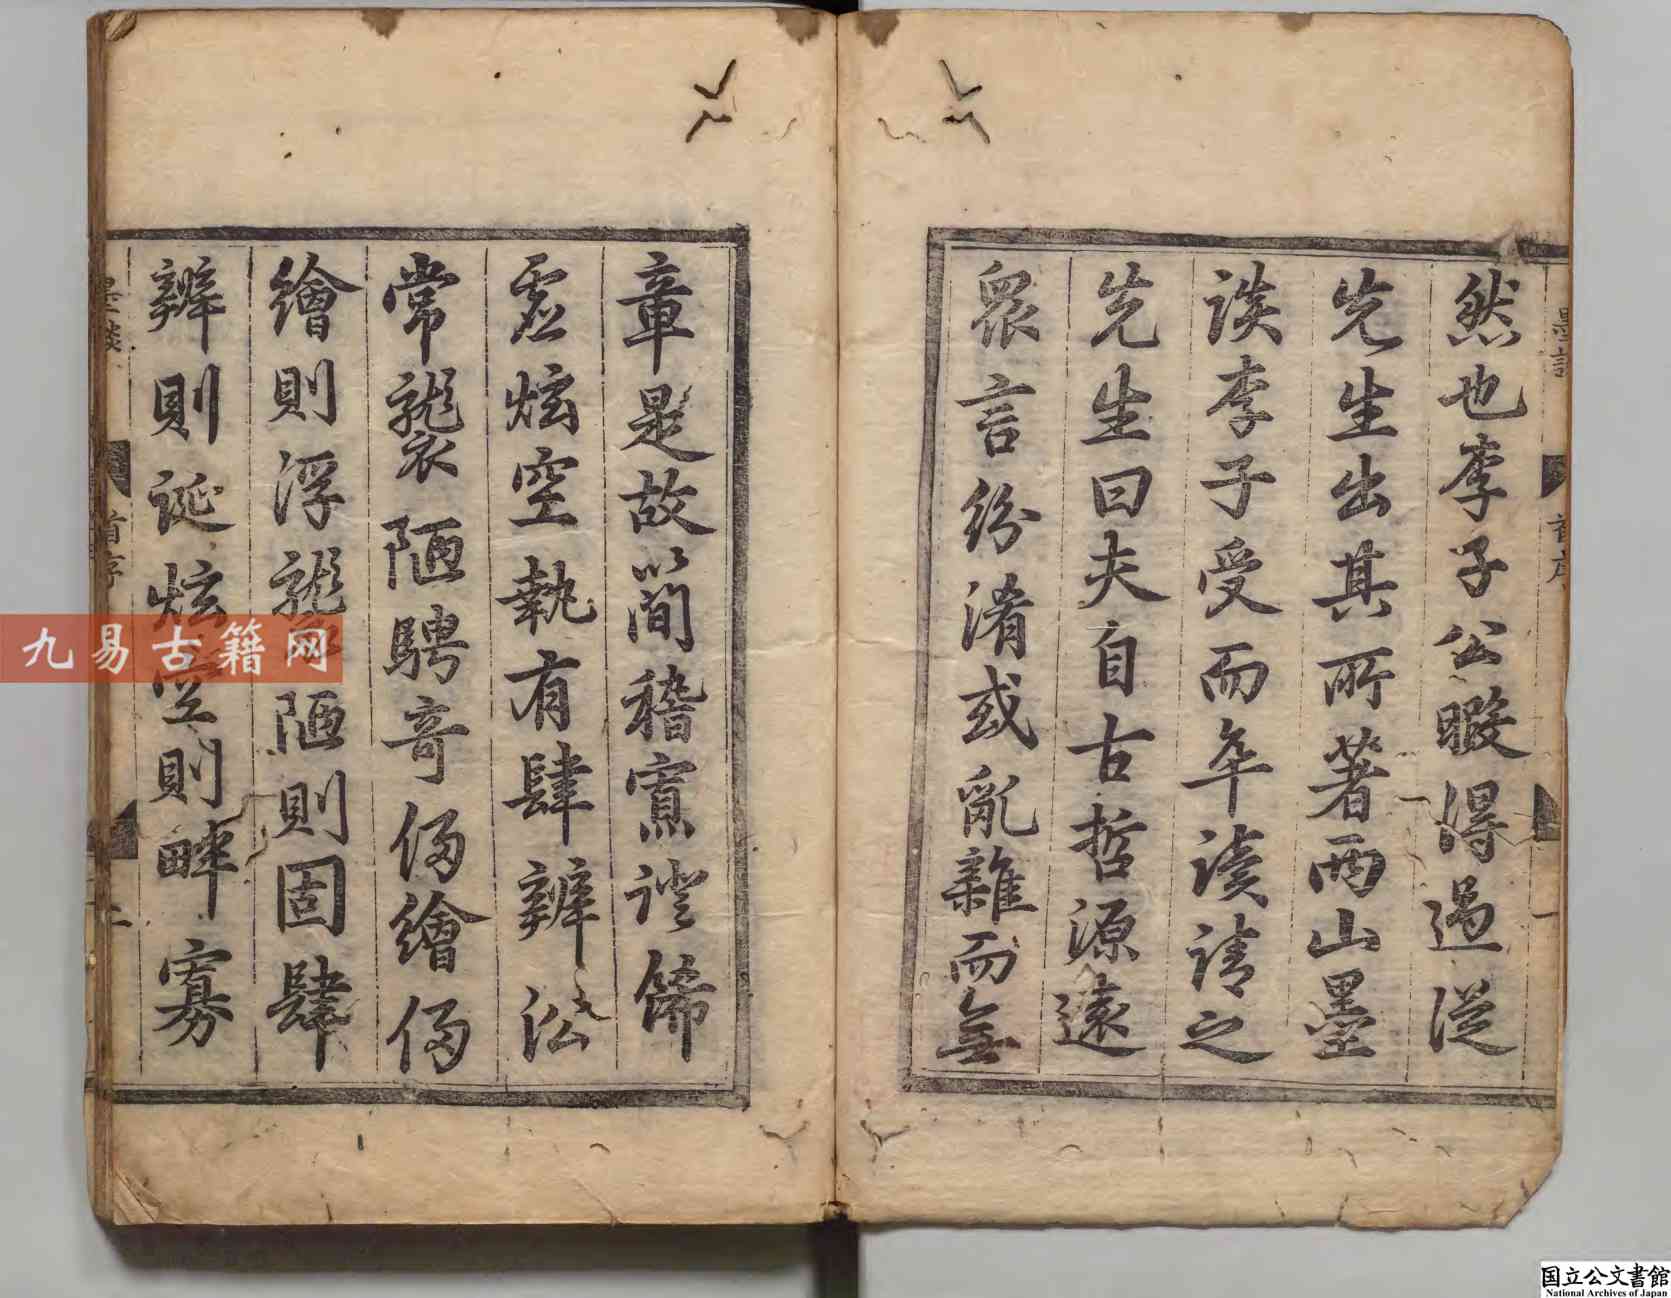 然也李子公暇得過從
先生出其所著兩山墨
談李子受而卒讀請之
先生曰夫自古哲源遠
眾言紛淆或亂雜而無
章是故簡稽寡證飾
虛炫空執有肆辨公
常襲陋騁奇侈繪侈
繪則浮襲陋則固肆
辨則誕炫空則畔寡
墨談
首序
一
墨談
首序
九易古籍网
国立公文書館
National Archives of Japan